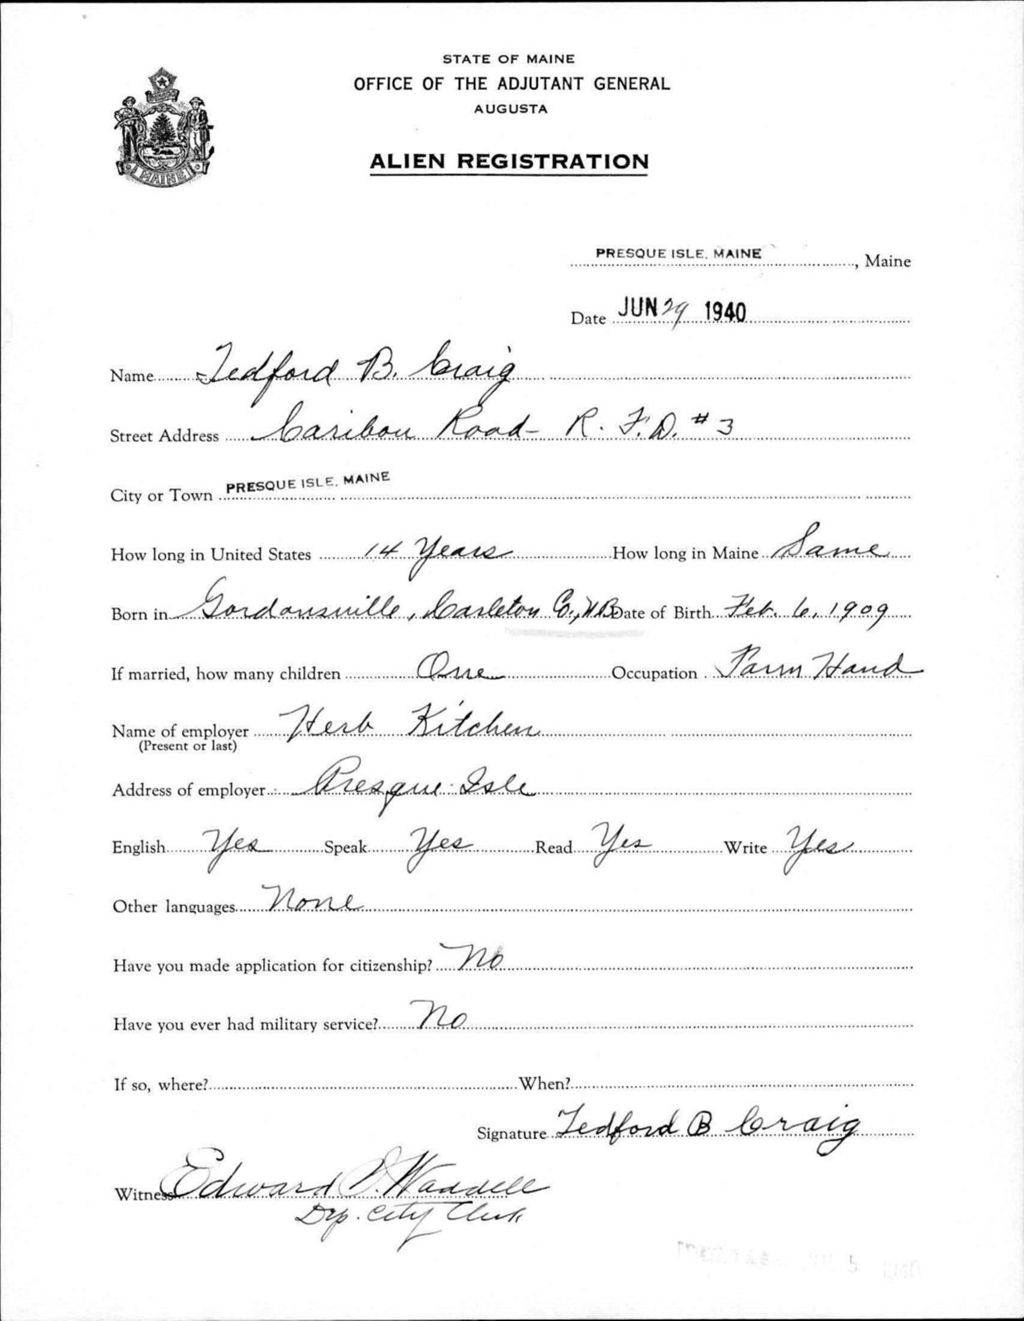 STATE OF MAINE
OFFICE OF THE ADJUTANT GENERAL
AUGUSTA
ALIEN REGISTRATION
MAINE
PRESQUE ISLE, MAINE, Maine
Date JUN 29 1940
Name Tedford B. Craig
Street Address Caribou Road- R. F. D. #3
City or Town PRESQUE ISLE, MAINE
How long in United States 14 Years How long in Maine Same
Born in Gordonsville, Carleton Co., N.B. Date of Birth Feb. 6, 1909
If married, how many children One Occupation Farm Hand
Name of employer Herb Kitchen
(Present or last)
Address of employer Presque Isle
English Yes Speak Yes Read Yes Write Yes
Other languages None
Have you made application for citizenship? No
Have you ever had military service? No
If so, where? When?
Signature Tedford B Craig
Witness Edward P. Waddell
Dep. City Clerk